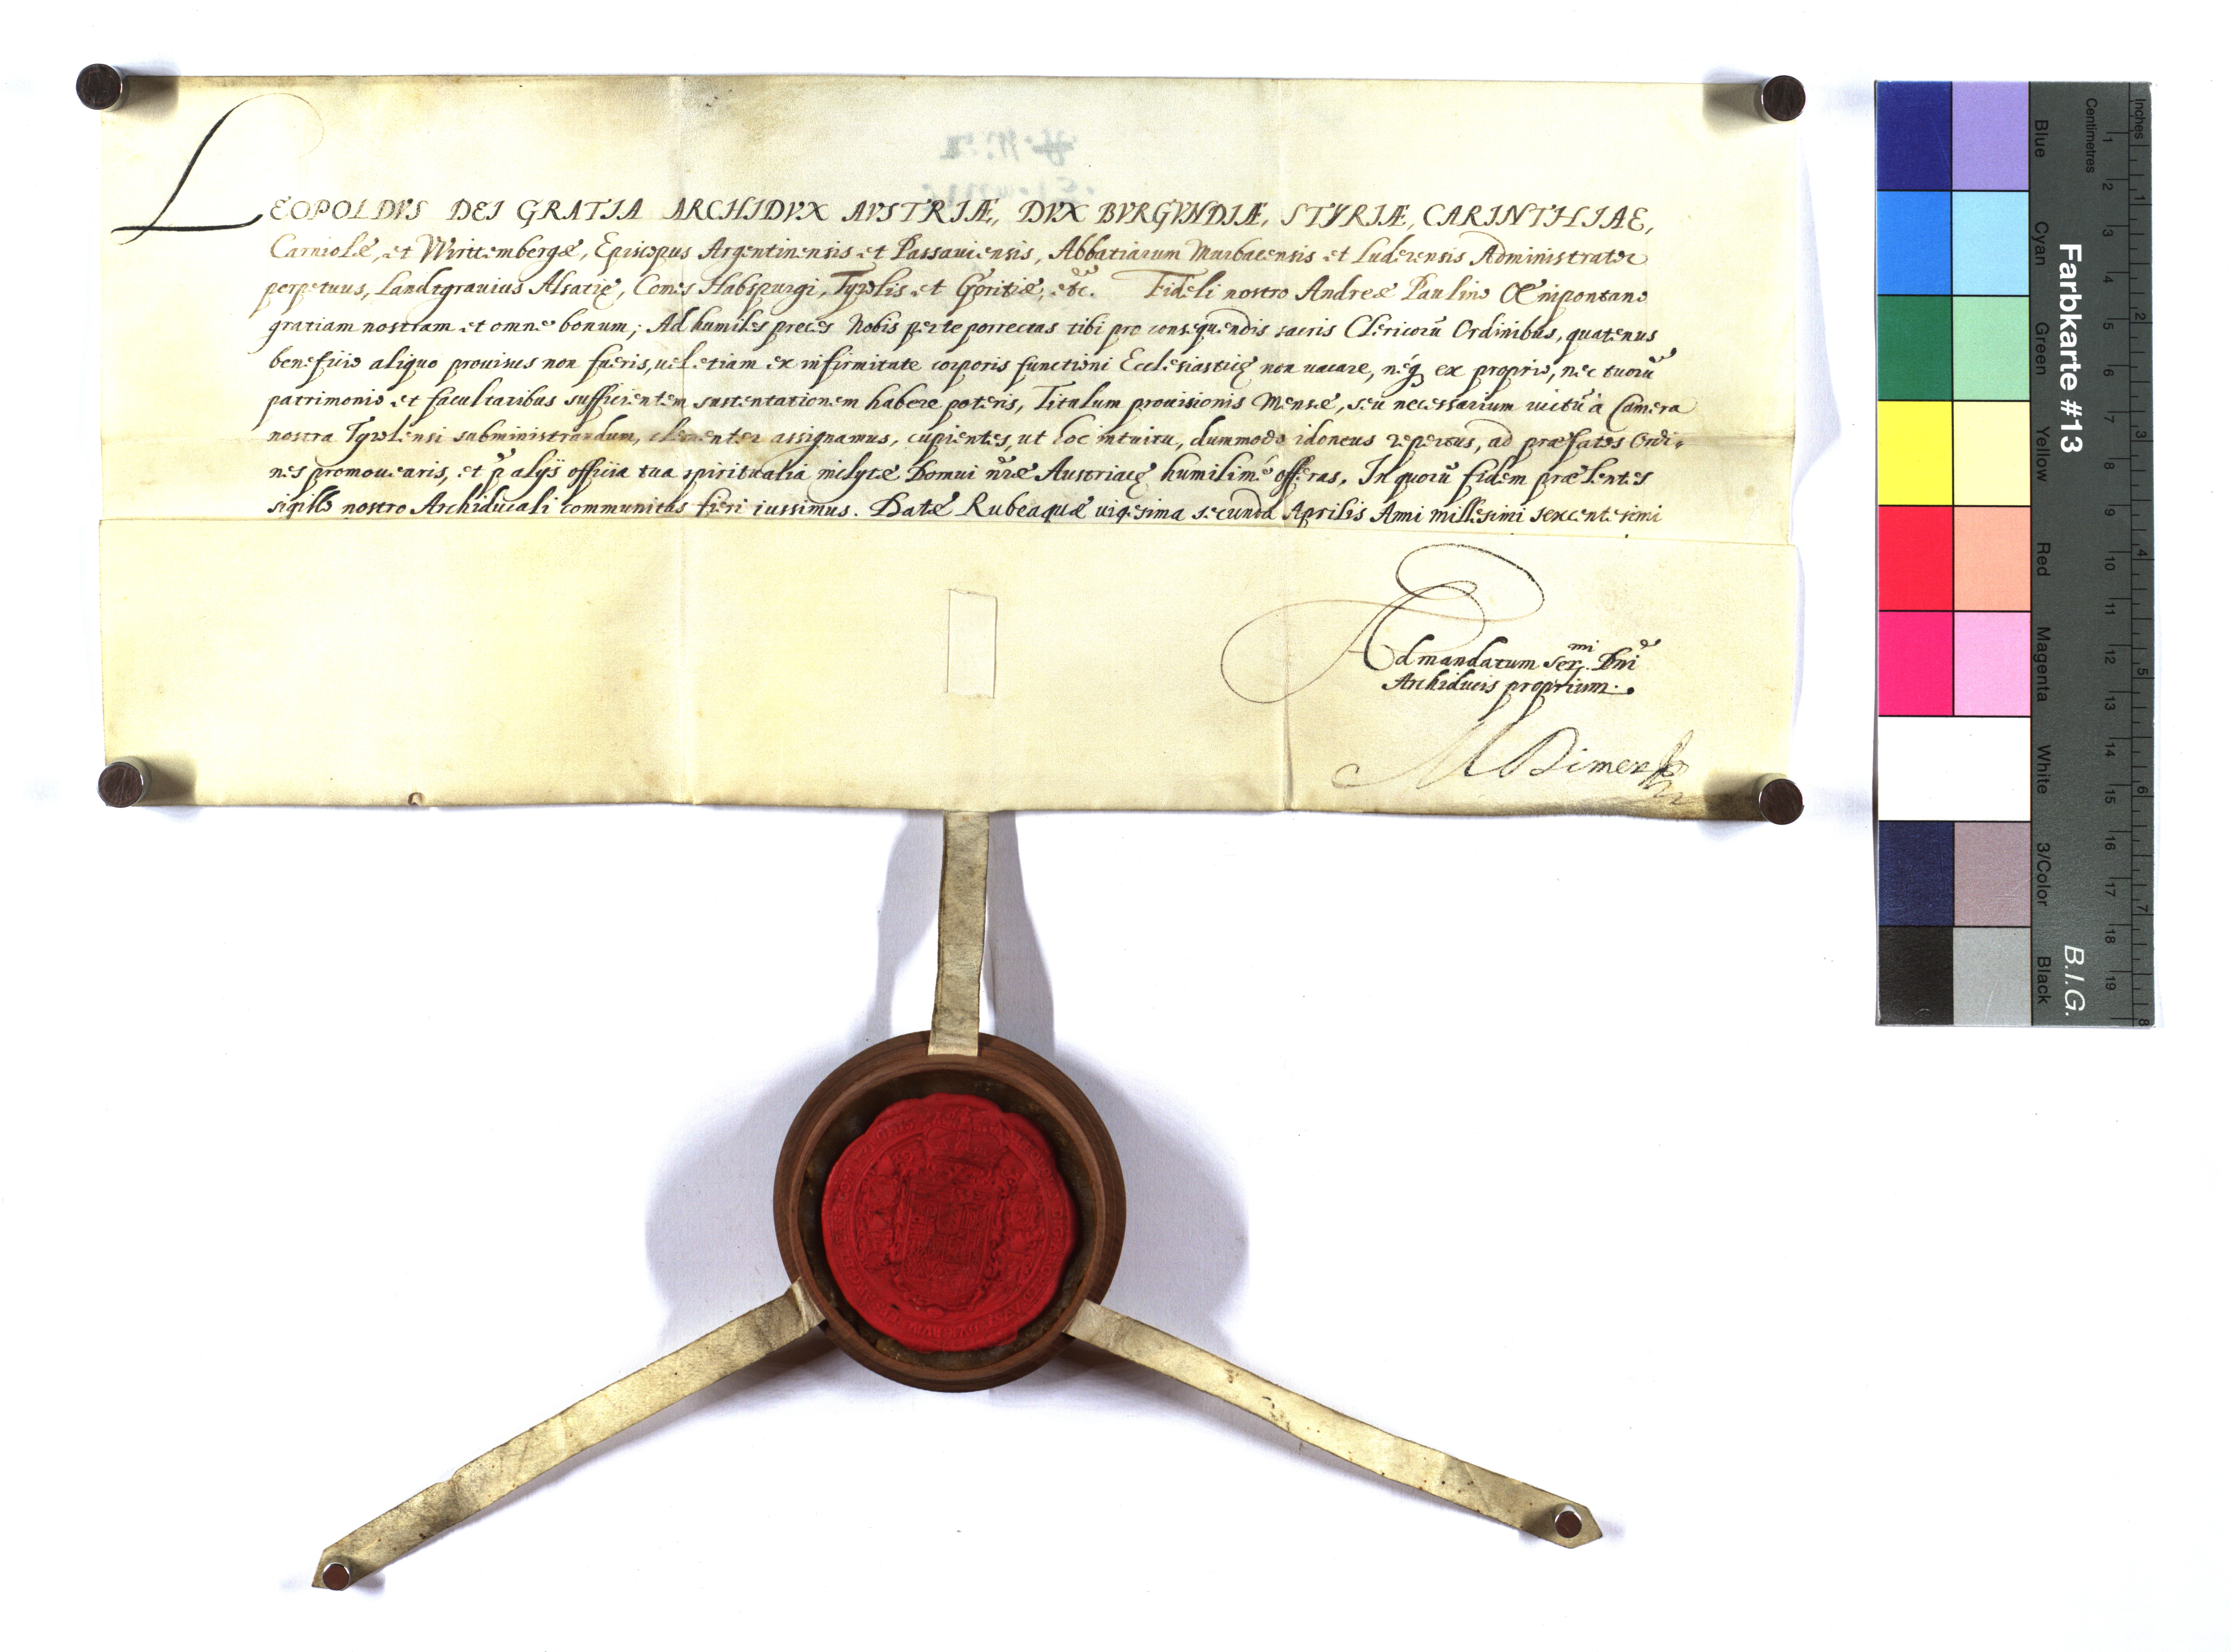 LEOPOLDVS DEI GRATIA ARCHIDVX AVSTRIÆ, DVX BVRGVNDIÆ, STYRIÆ, CARINTHIAE,
Carniolæ, et Wirttembergæ, Episcopus Argentinensis et Passauiensis, Abbatiarum Murbacensis et Luderensis Administrator
perpetuus, Landtgrauius Alsatię, Comes Habspurgi, Tyrolis et Goritiæ, etc. Fideli nostro Andreæ Paulino Œnipontano
gratiam nostram et omne bonum; Ad humiles preces Nobis per te porrectas tibi pro consequendis sacris Clericorū Ordinibus, quatenus
beneficio aliquo prouisus non fueris, uel etiam ex infirmitate corporis functioni Ecclesiasticę non uacare, neq́ ex proprio, nec tuorū
patrimonio et facultatibus sufficientem sustentationem habere poteris, Titulum prouisionis Mensæ, seu necessarium uictū à Camera
nostra Tyrolensi subministrandum, clementer assignamus, cupientes, ut hoc intuitu, dummodo idoneus repertus, ad præfatos Ordi-
nes promouearis, et p̄ alijs officia tua spiritualia inclytæ Domui nr̄æ Austriacę humilimè offeras, In quorū fidem præsentes
sigillo nostro Archiducali communitas fieri iussimus. Datæ Rubeaquæ uigesima secunda Aprilis Anni millesimi sexcentesimi
Ad mandatum Ser.mi Dn̄i
Archiducis proprium.
Farbkarte #13
B.I.G.
Inches 1 2 3 4 5 6 7 8
Centimetres 1 2 3 4 5 6 7 8 9 10 11 12 13 14 15 16 17 18 19
Blue Cyan Green Yellow Red Magenta White 3/Color Black